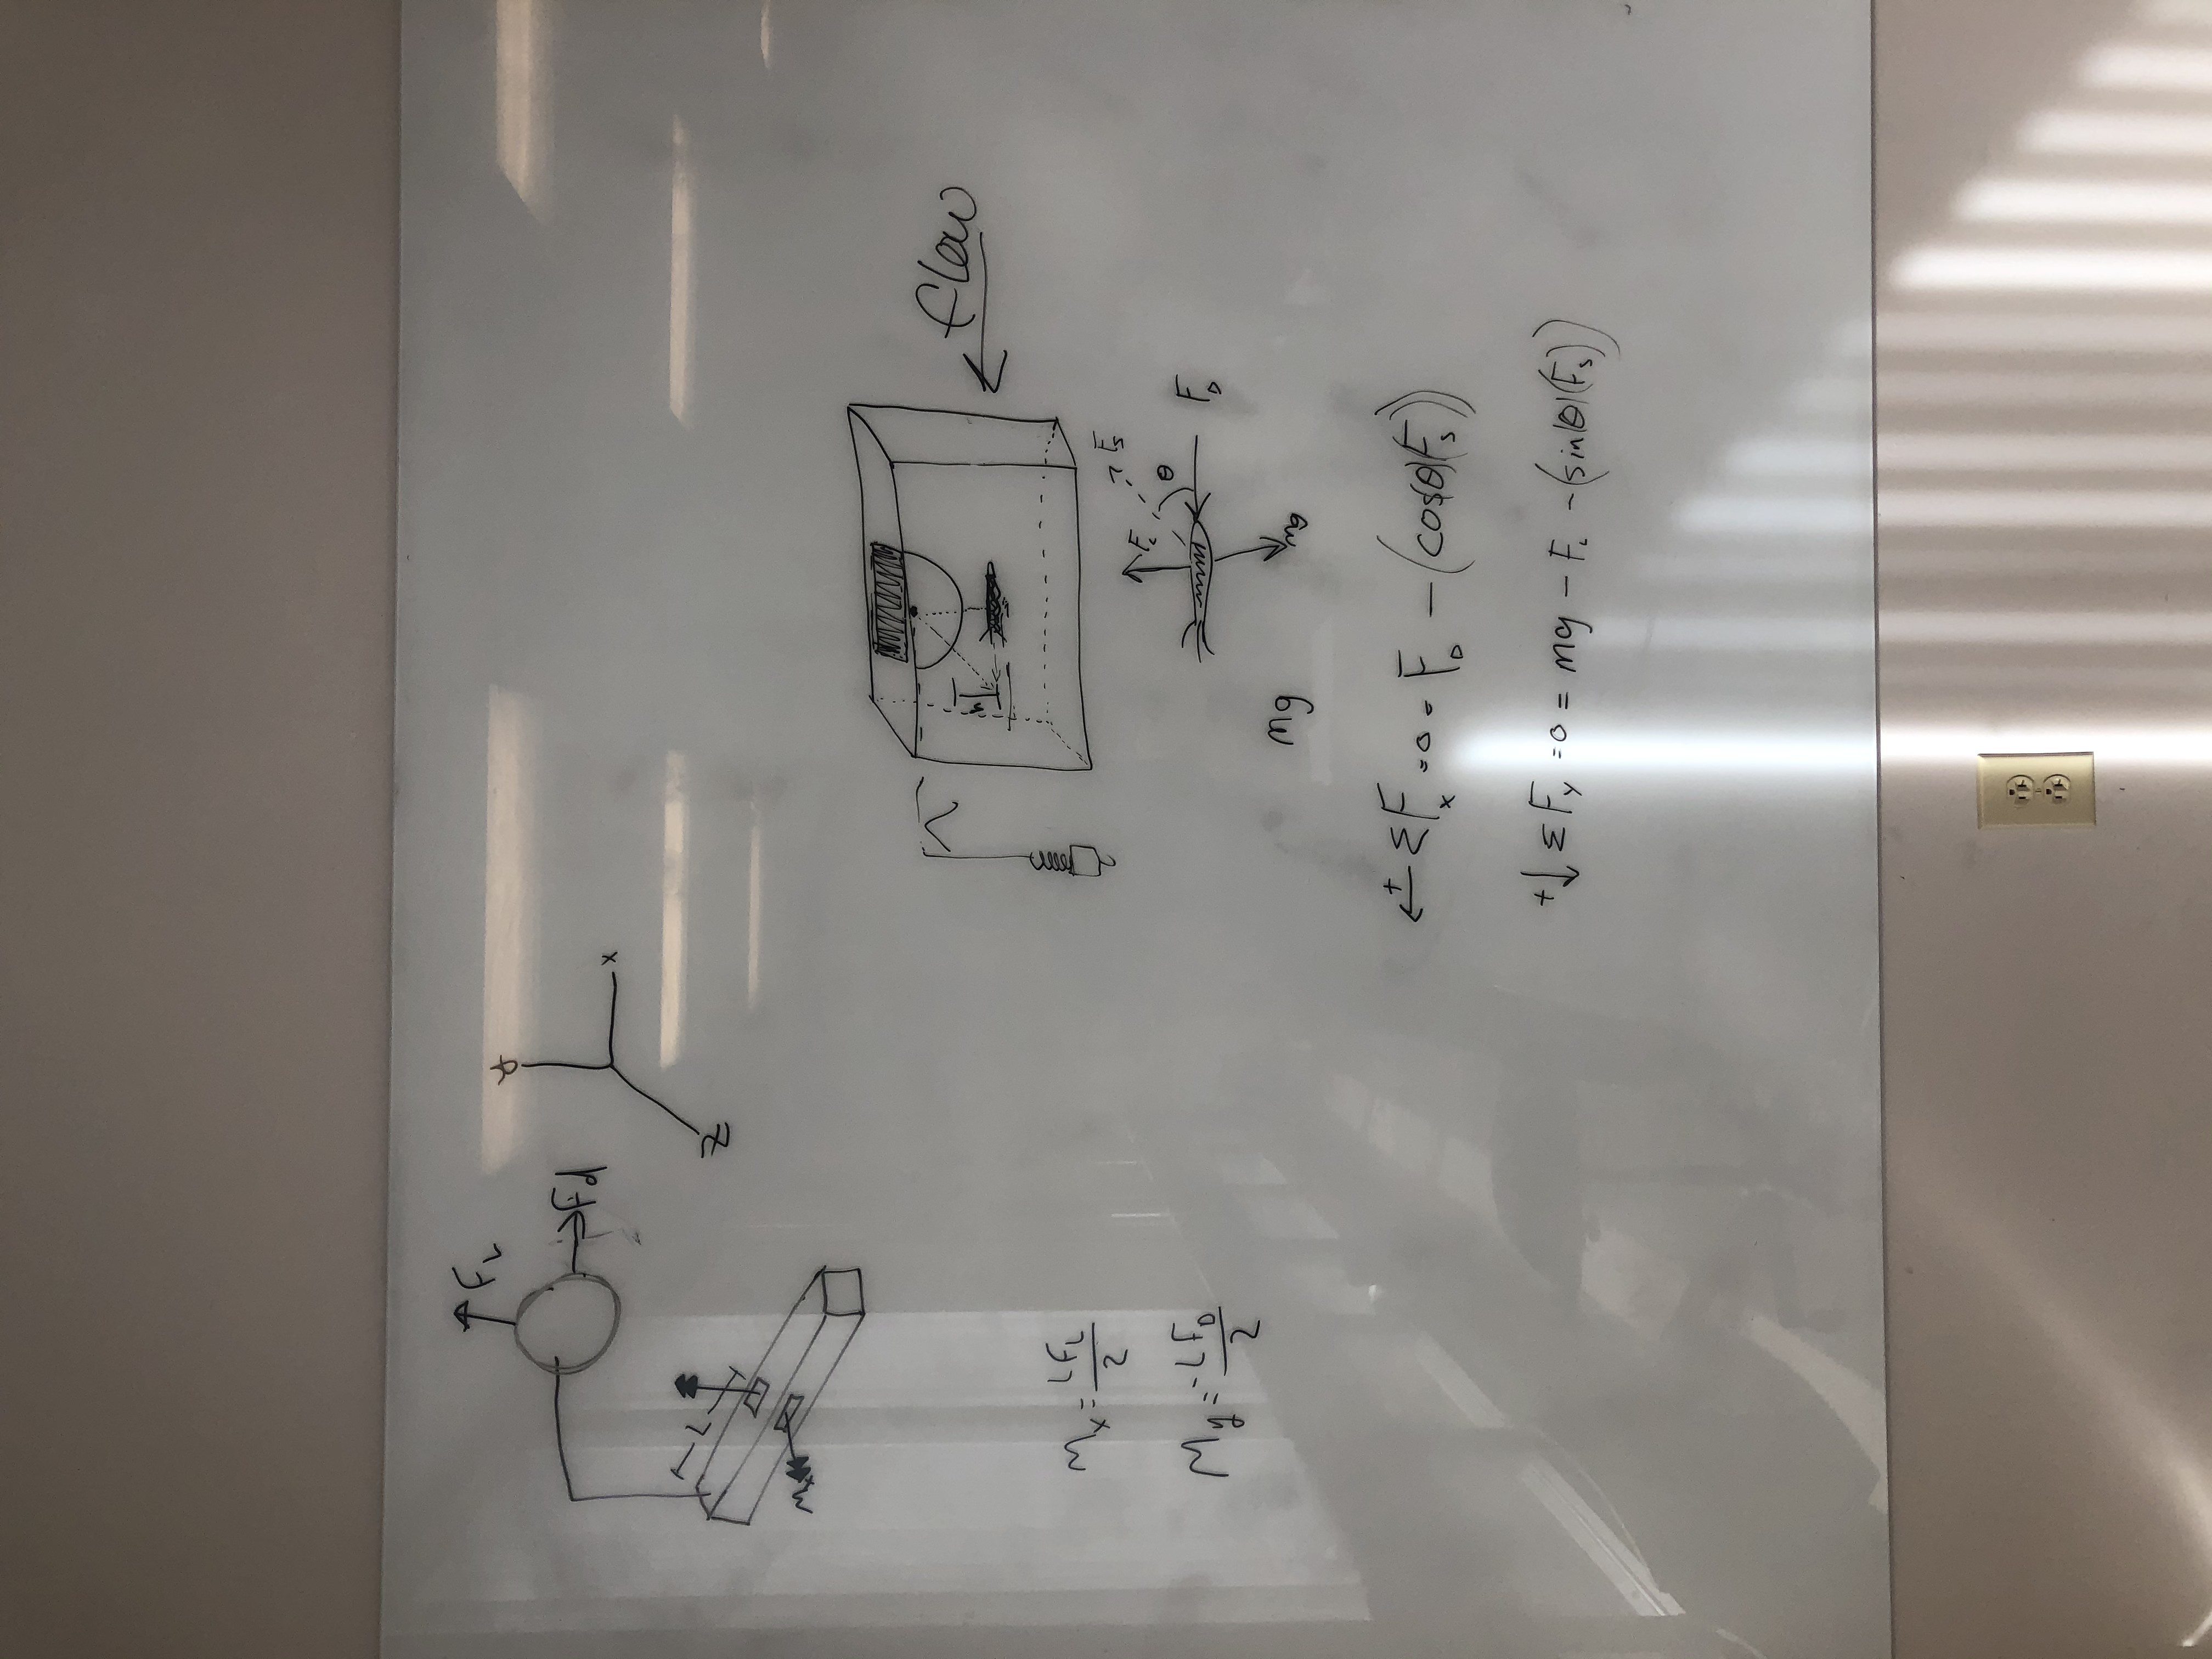 F_L
Fd
y
x
z
L
M_x
M_x = LF_L / 2
M_y = -LF_D / 2
h
flow
F_s
F_L
θ
F_D
mg
mg
← + ΣF_x = 0 = F_D - (cos(θ)(F_s))
+ ↓ ΣF_y = 0 = mg - F_L - (sin(θ)(F_s))